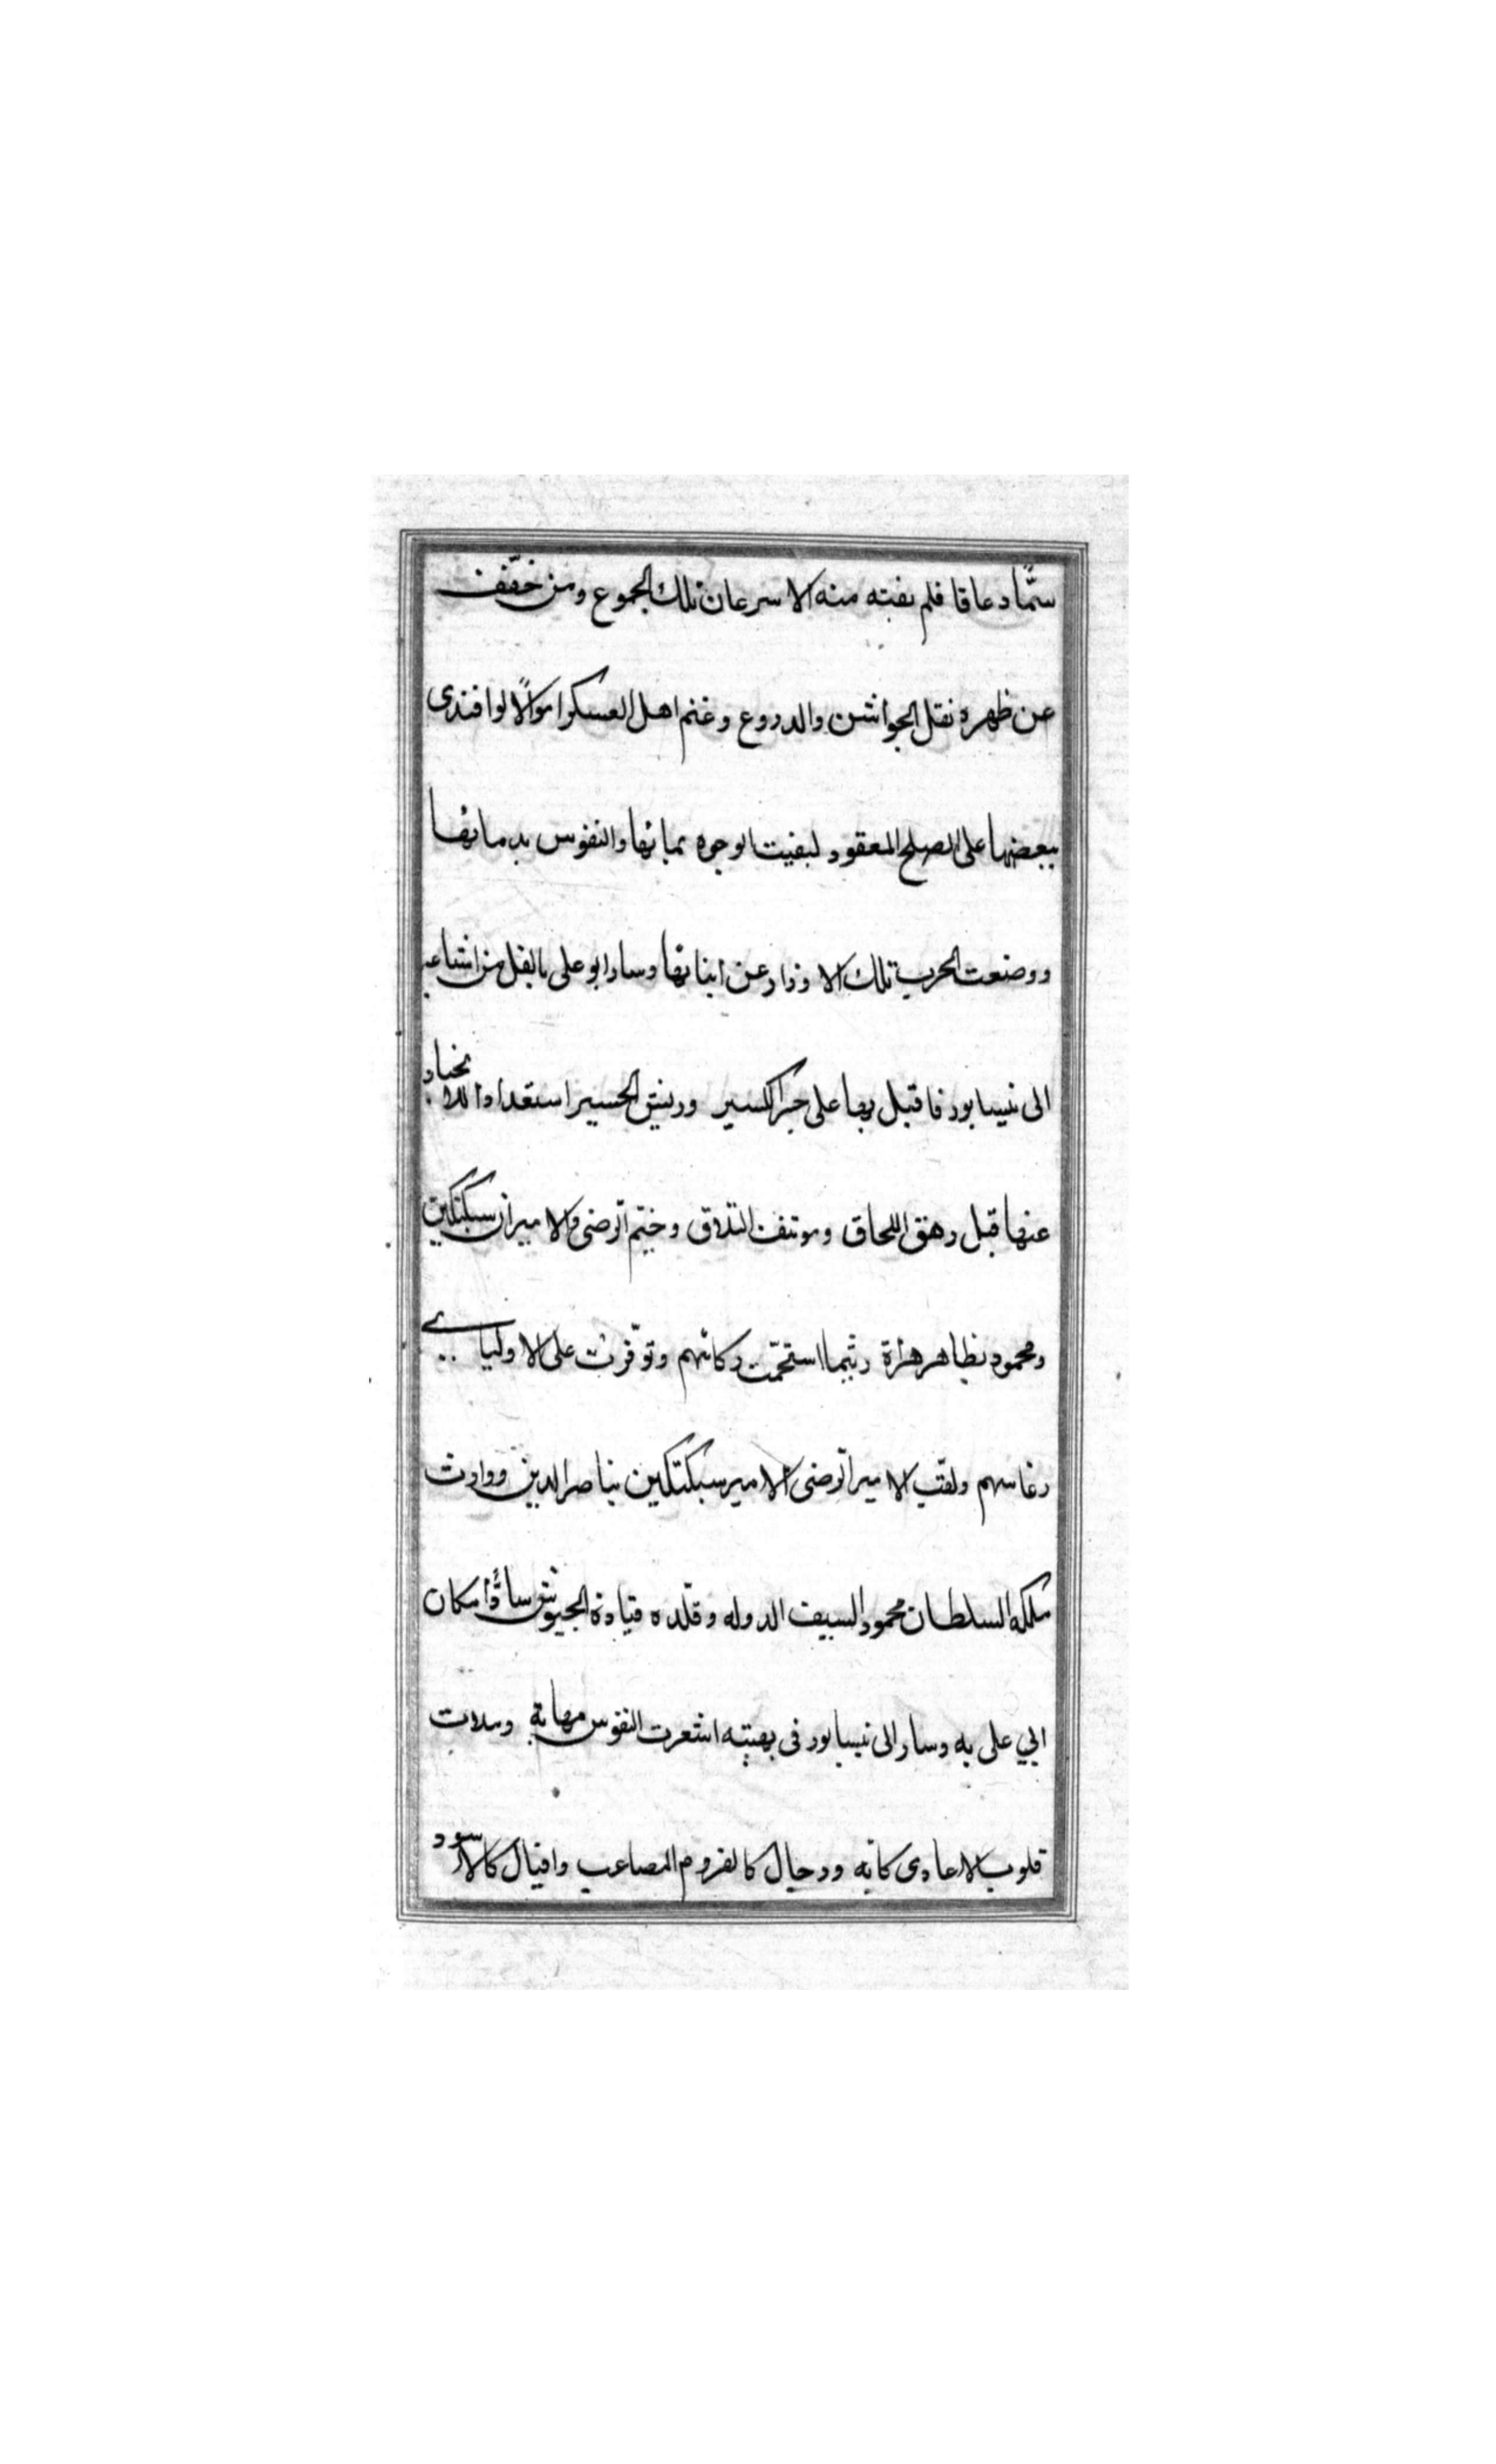 سمًّا دعاقا فلم يفته منه الا سرعان تلك الجموع ومن خفّف
عن ظهره نقل الجواشن والدروع وغنم اهل العسكر اموالًا لو افتدى
ببعضها على الصلح المعقود لبقيت الوجوه بمائها والنفوس بدمائها
ووضعت الحرب تلك الاوزار عن ابنائها وسار ابو على بالفل من اشياعه
الى نيسابور فاقبل بها على جبر الكسير وريش الحسير استعدادا للانحياز
عنها قبل رهق اللحاق وموتنف التلاق وخيّم الرضى والاميران سبكتكين
ومحمود بظاهر هراة ريثما استجمّت ركائبهم وتوفّرت على الاولياء
رغائبهم ولقّب الامير الرضى الامير سبكتكين بناصر الدين ووارث
ملكه السلطان محمود السيف الدوله وقلّده قيادة الجيوش سادًّا مكان
ابي على به وسار الى نيسابور فى بهيته اشعرت النفوس مهابة وملات
قلوب الاعادى كابه ورجال كالقروم المصاعب وافيال كالاسود